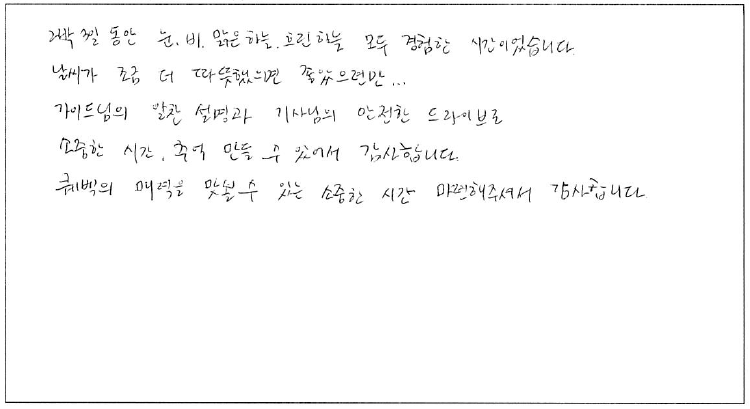 2박 3일 동안 눈, 비, 맑은하늘, 흐린하늘 모두 경험한 시간이었습니다
날씨가 조금 더 따뜻했으면 좋았으련만...
가이드님의 알찬 설명과 기사님의 안전한 드라이브로
소중한 시간, 추억 만들 수 있어서 감사합니다.
퀘벡의 매력을 맛볼 수 있는 소중한 시간 마련해주셔서 감사합니다